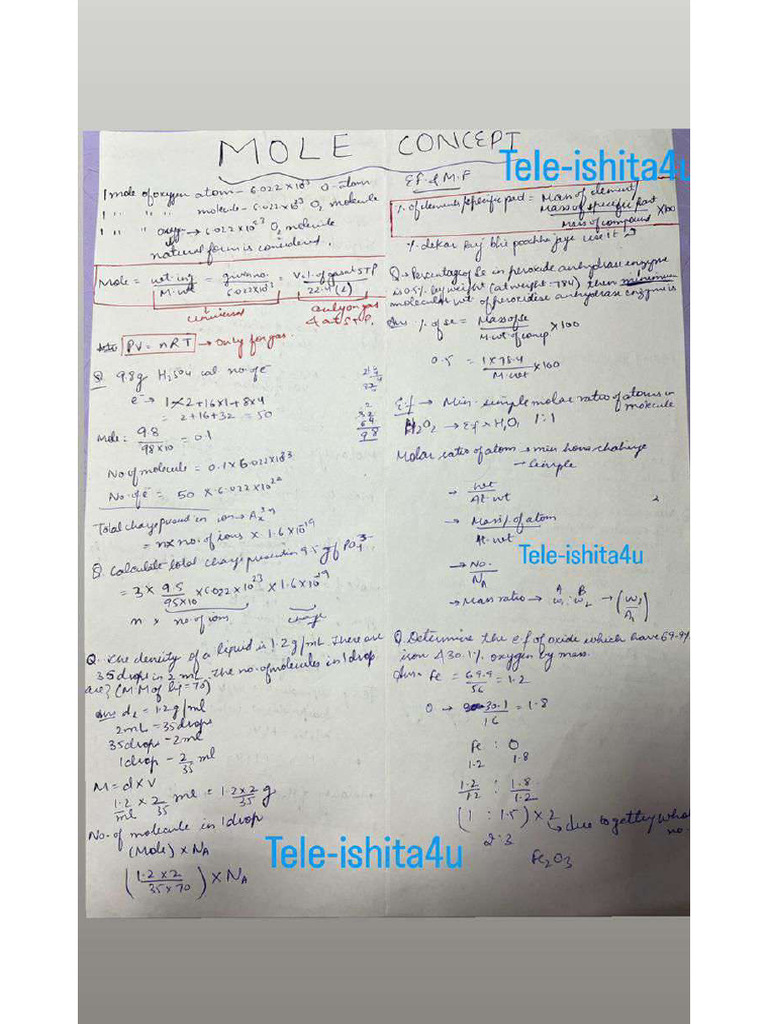 MOLE CONCEPT
Tele-ishita4u
1 mole of oxygen atom - 6.022×10²³ O-atom
1 " " " molecule - 6.022×10²³ O₂ molecule
1 " " oxygen → 6.022×10²³ O₂ molecule
natural form is considered.
Mole = wt. in g / M.wt = given no. / 6.022×10²³ = Vol. of gas at STP / 22.4 (L)
universal
only on gas
& at STP.
PV = nRT → Only for gas.
Q 9.8g H₂SO4 cal no. of e⁻
e⁻ → 1×2+16×1+8×4
= 2+16+32 = 50
2
32
64
98
Mole = 9.8 / 98×10 = 0.1
No of molecule = 0.1×6.022×10²³
No. of e⁻ = 50 × 6.022×10²²
Total charge present in ion → Aₓ
= n×no. of ions × 1.6×10⁻¹⁹
Q. Calculate total charge present in 9.5 g of PO₄³⁻
= 3 × 9.5 / 95×10 × 6.022×10²³ × 1.6×10⁻¹⁹
n × no. of ion charge
Q. The density of a liquid is 1.2 g/mL. There are
35 drops in 2 mL. The no. of molecules in 1 drop
are? (M.M of liq = 70)
Ans d₂ = 1.2 g/ml
2mL = 35 drops
35 drops - 2ml
1 drop - 2/35 ml
M = d×V
1.2/ml × 2/35 ml = 1.2×2/35 g
No. of molecule in 1 drop
(Mole) × N_A
(1.2×2 / 35×70) × N_A
Ef & M.F
% of elements/specific part = Mass of element / Mass of specific part / Mass of compound ×100
% dekar kuj bhi poochha jaye use it
Q. Percentage of Se in peroxide anhydrase enzyme
is 0.5% by weight (at weight = 78.4) then minimum
molecular wt of peroxidase anhydrase enzyme is
Ans % of se = Mass of se / M.wt of comp ×100
0.5 = 1×78.4 / M.wt ×100
Ef → Min. simple molar ratio of atoms in
molecule
H₂O₂ → Ef → H₁O₁ 1:1
Molar ratio of atom →
- simple
- wt / At. wt
→ Mass % of atom / At. wt
Tele-ishita4u
→ No. / N_A
→ Mass ratio → A B w₁ : w₂ → (w₁ / A₁)
Q. Determine the e.f of oxide which have 69.9%
iron & 30.1% oxygen by mass.
Ans = Fe = 69.9 / 56 = 1.2
O → 30.1 / 16 = 1.8
Fe : O
1.2 1.8
1.2 / 1.2 : 1.8 / 1.2
(1 : 1.5) × 2
→ due to getting whol
no.
2:3
Fe₂O₃
Tele-ishita4u